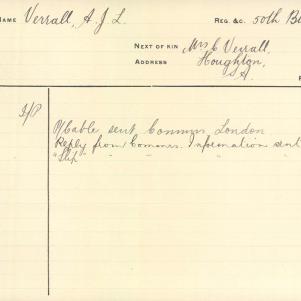 NAME Verrall, A. J. L. REG. &C. 50th B
NEXT OF KIN Mrs C Verrall,
ADDRESS Houghton,
S A
I/P
O/Cable sent Commrs London
Reply from Commrs. Information sent
"Slip" " " " "